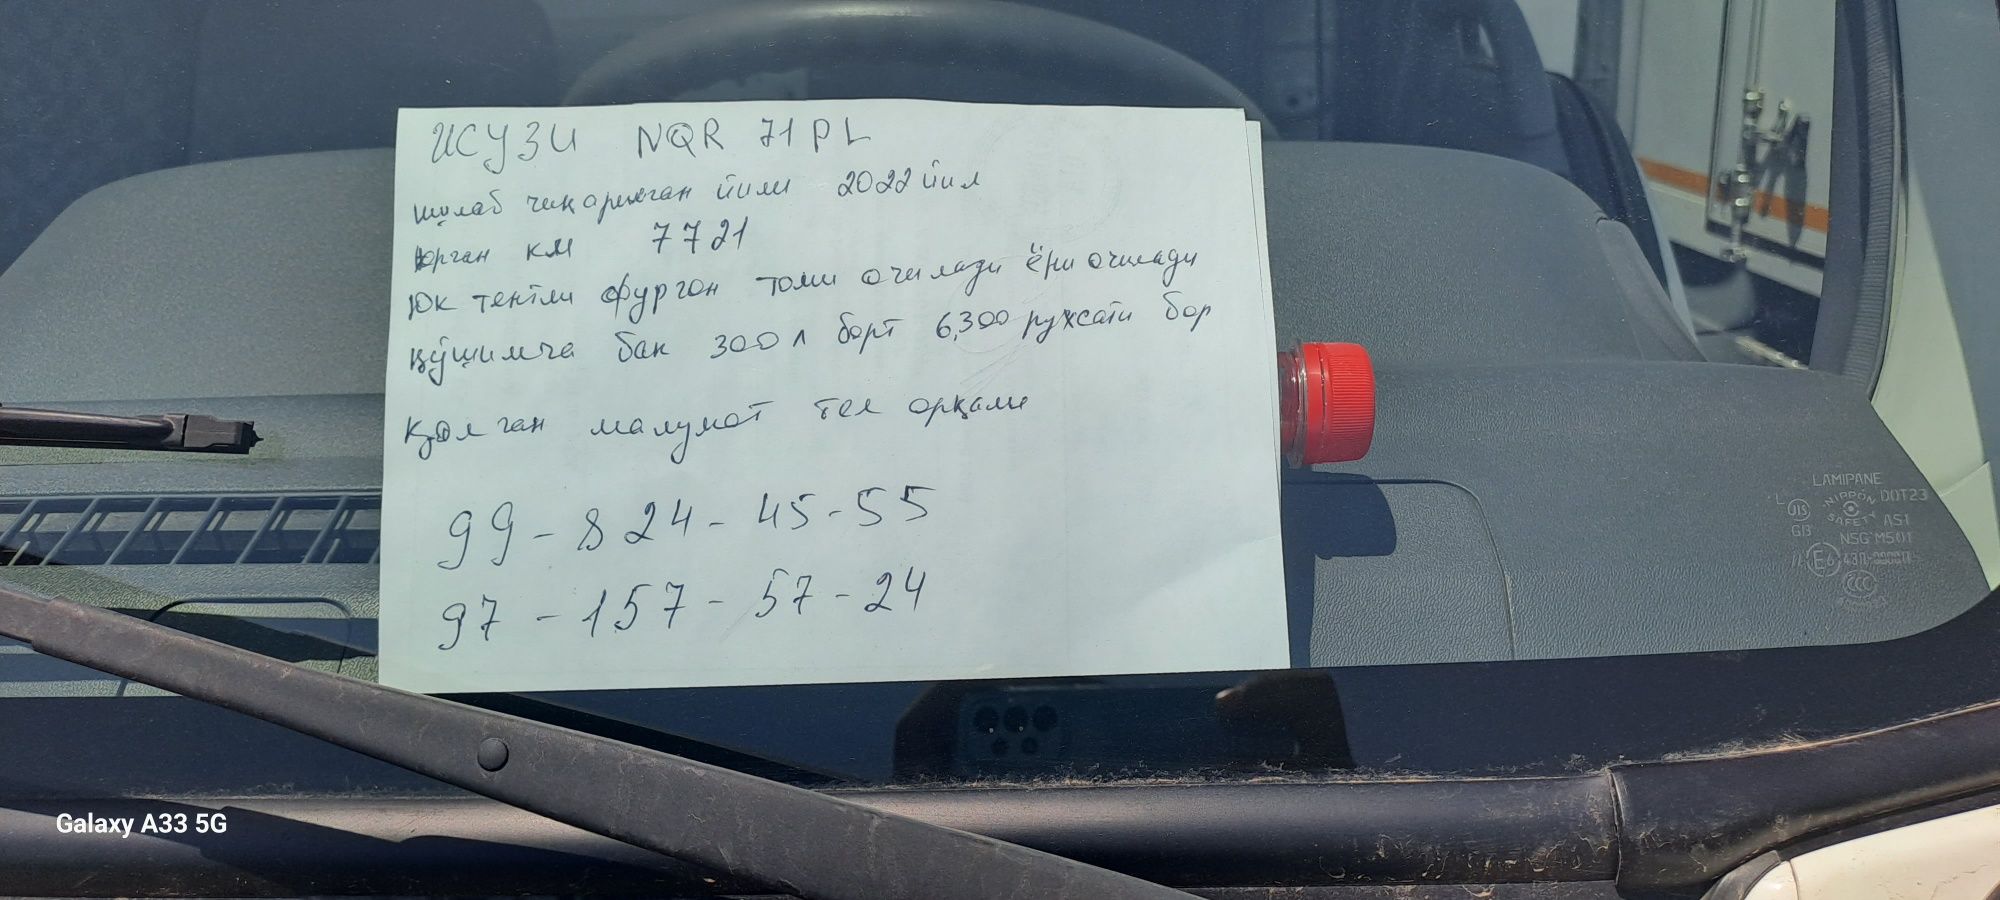 ИСУЗИ NQR 71 PL
ишлаб чиқарилган йили 2022 йил
юрган км 7721
Юк тентли фургон томи очилади ёни очилади
қўшимча бак 300 л борт 6,300 рухсати бор
Қолган малумот тел орқали
99-824-45-55
97-157-57-24
LAMIPANE
NIPPON DOT23
JIS
SAFETY AS1
NSG M501
E6
CCC
Galaxy A33 5G